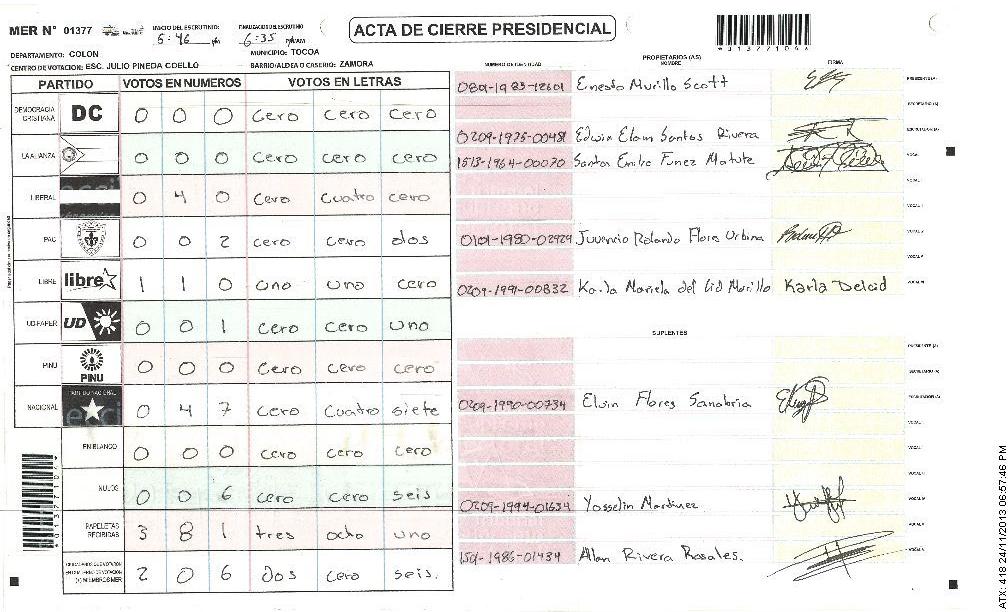 MER N° 01377
INICIO DEL ESCRUTINIO
5:46 pm
FINALIZACION DEL ESCRUTINIO
6:35 PM/AM
ACTA DE CIERRE PRESIDENCIAL
DEPARTAMENTO: COLON
MUNICIPIO: TOCOA
CENTRO DE VOTACION: ESC. JULIO PINEDA COELLO
BARRIO/ALDEA O CASERIO: ZAMORA
PARTIDO VOTOS EN NUMEROS VOTOS EN LETRAS
DEMOCRACIA CRISTIANA DC 0 0 0 cero cero cero
LA ALIANZA 0 0 0 cero cero cero
LIBERAL 0 4 0 cero cuatro cero
PAC 0 0 2 cero cero dos
LIBRE libre 1 1 0 uno uno cero
UD-FAPER UD 0 0 1 cero cero uno
PINU PINU 0 0 0 cero cero cero
NACIONAL PARTIDO NACIONAL 0 4 7 cero cuatro siete
EN BLANCO 0 0 0 cero cero cero
NULOS 0 0 6 cero cero seis
PAPELETAS RECIBIDAS 3 8 1 tres octo uno
2 0 6 dos cero seis.
PROPIETARIOS (AS)
NUMERO DE IDENTIDAD NOMBRE FIRMA
0801-1983-12601 Ernesto Murillo Scott PRESIDENTE (A)
SECRETARIO (A)
0209-1975-00481 Edwin Elam Santos Rivera ESCRUTADOR (A)
1513-1964-00070 Santos Emilio Funez Matute
0101-1980-02929 Juvencio Rolando Flores Urbina
0209-1991-00832 Karla Mariela del Cid Murillo Karla Delcid
SUPLENTES
PRESIDENTE (A)
SECRETARIO (A)
0209-1990-00734 Elvin Flores Sanabria ESCRUTADOR (A)
0209-1994-01634 Yosselin Martinez
1501-1986-01434 Allan Rivera Rosales.
ATX: 418 24/11/2013 06:57:46 PM